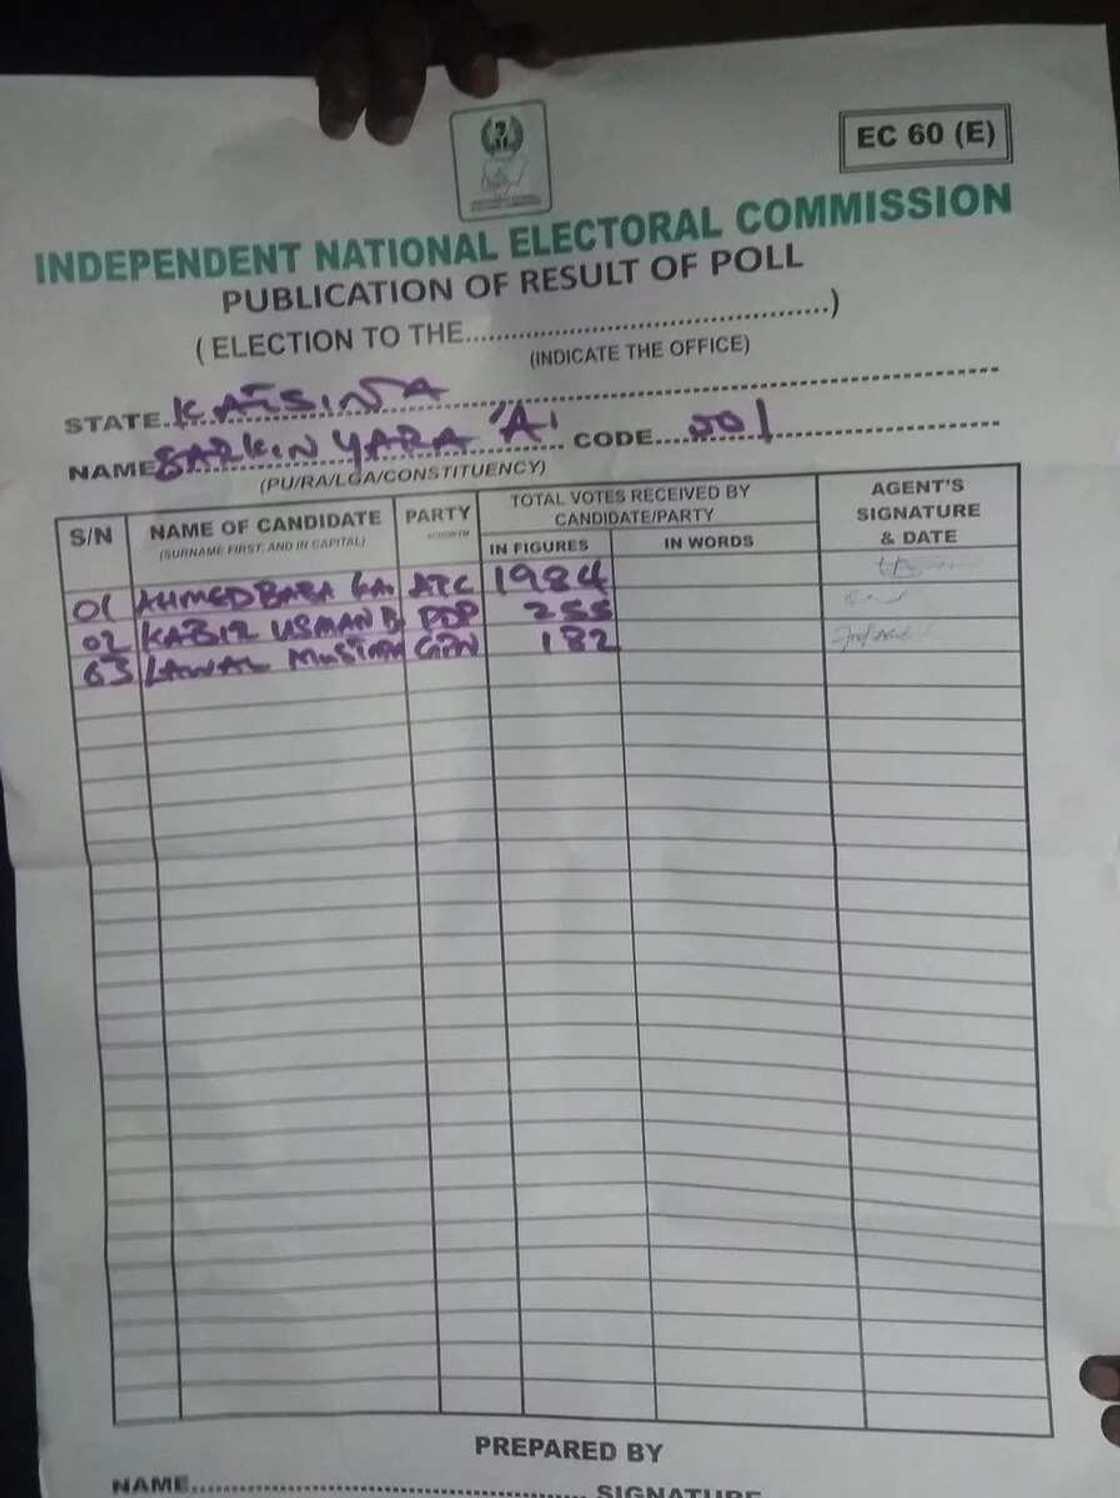 EC 60 (E)
INDEPENDENT NATIONAL ELECTORAL COMMISSION
PUBLICATION OF RESULT OF POLL
( ELECTION TO THE........................................)
(INDICATE THE OFFICE)
STATE. KATSINA
NAME SARKIN YARA 'A' CODE.... 001
(PU/RA/LGA/CONSTITUENCY)
S/N NAME OF CANDIDATE (SURNAME FIRST, AND IN CAPITAL) PARTY TOTAL VOTES RECEIVED BY CANDIDATE/PARTY AGENT'S SIGNATURE & DATE
IN FIGURES IN WORDS
01 AHMED BABA APC 1984
02 KABIR USMAN PDP 255
03 LAWAL 182
PREPARED BY
NAME........................................ SIGNATURE